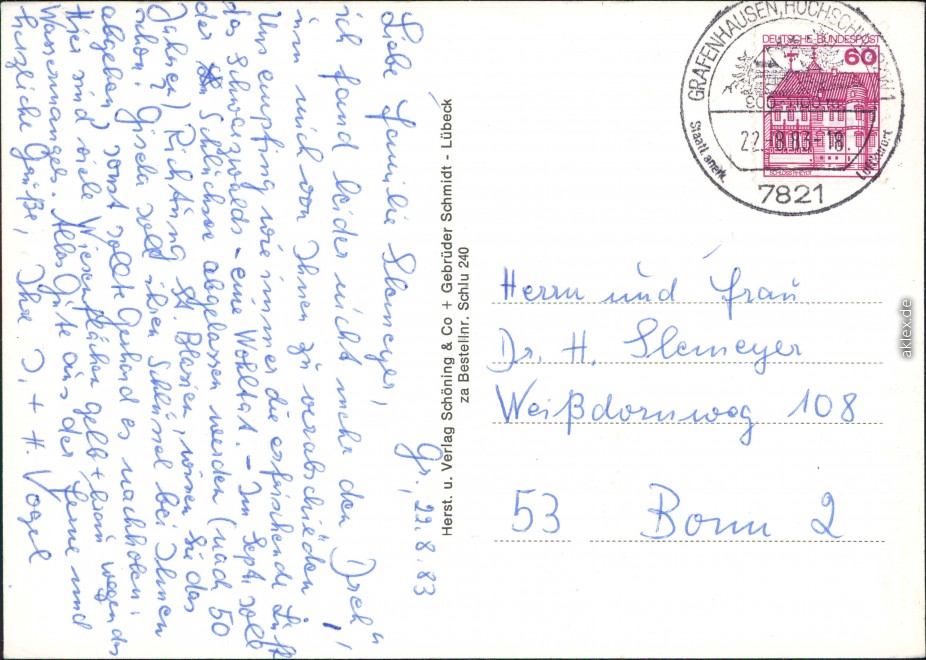 Gr., 22.8.83
Liebe Familie Slemeyer,
ich fand leider nicht mehr den "Dreh",
um mich von Ihnen zu verabschieden!
Uns empfing wie immer die erfrischende Luft
des Schwarzwalds - eine Wohltat. - Im Sept. soll
der Schluchsee abgelassen werden (nach 50
Jahren) Richtung St. Blasien, wissen Sie das
schon? Gisela soll ihren Schlüssel bei Ihnen
abgeben, sonst sollte Gerhard es nachholen.
Hier sind viele Wiesenflächen gelb + braun wegen des
Wassermangel. Alles Gute aus der Ferne und
herzliche Grüße, Ihre J. + H. Vogel
Herst. u. Verlag Schöning & Co + Gebrüder Schmidt - Lübeck
za Bestellnr. Schlu 240
GRAFENHAUSEN, HOCHSCHWARZW 1
22.-8.83-18
Staatl. anerk. Luftkurort
7821
DEUTSCHE BUNDESPOST
60
Herrn und Frau
Dr. H. Slemeyer
Weißdornweg 108
53 Bonn 2
aklex.de